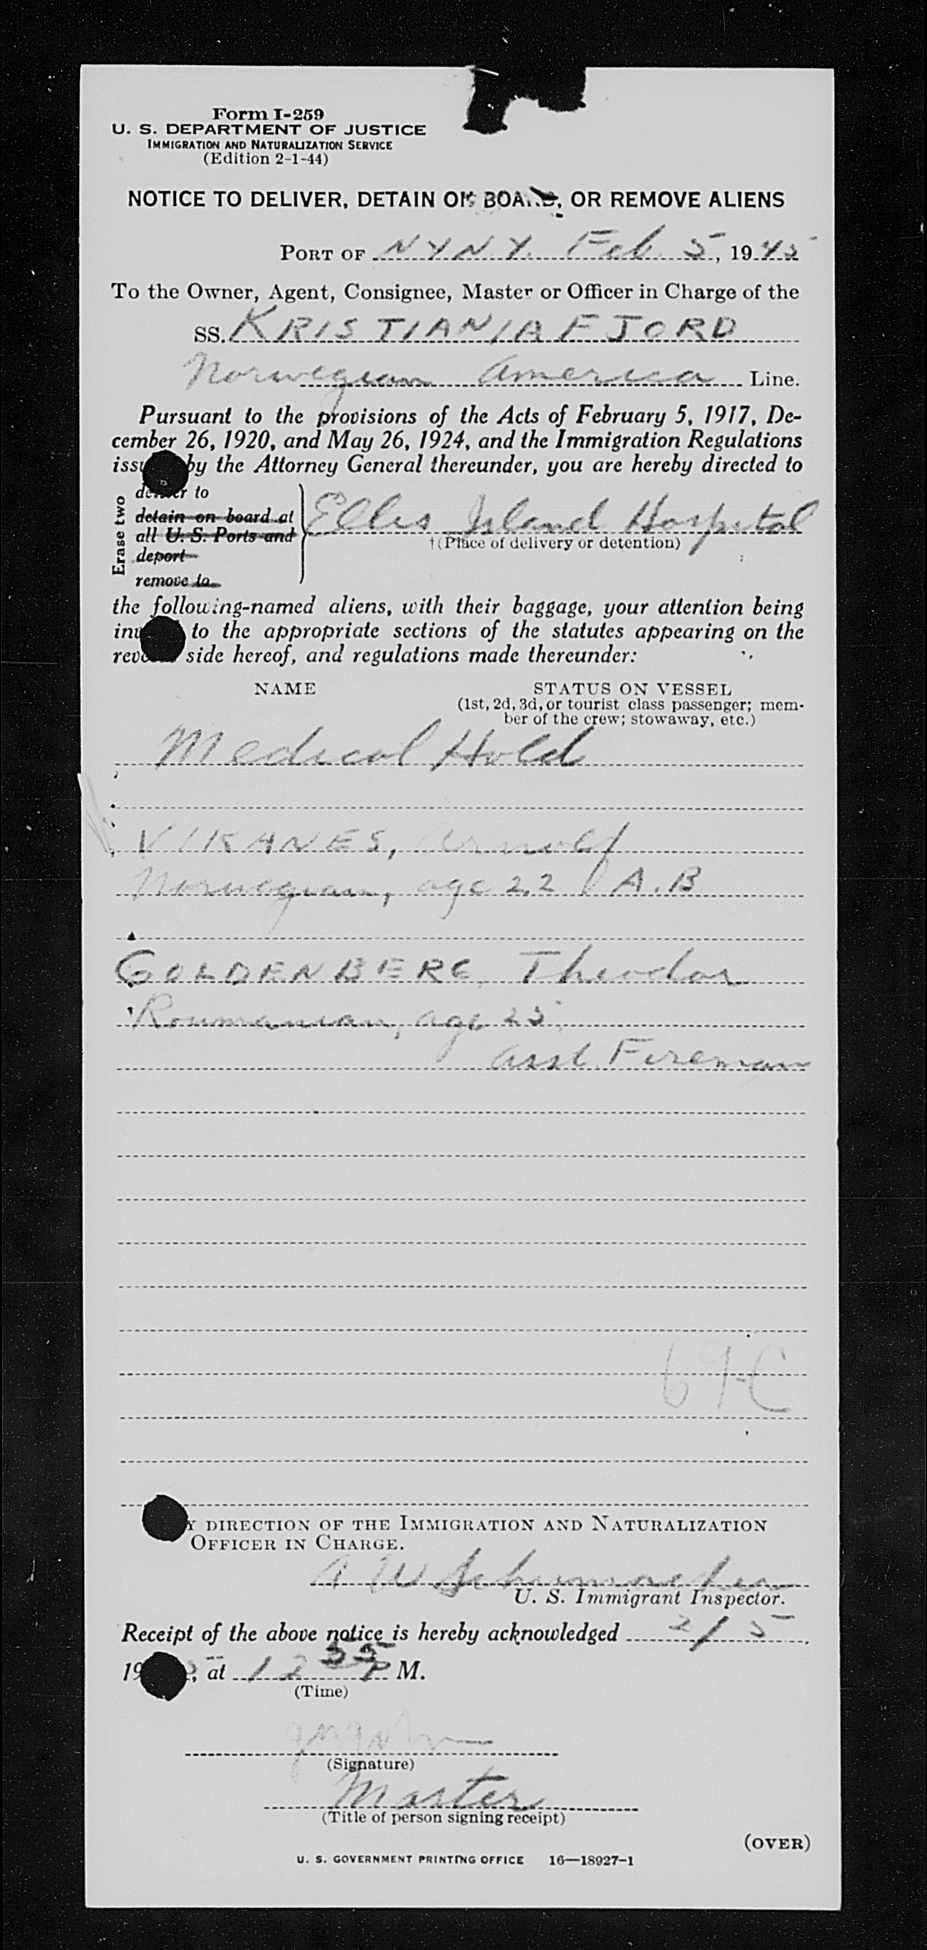 Form I-259
U. S. DEPARTMENT OF JUSTICE
IMMIGRATION AND NATURALIZATION SERVICE
(Edition 2-1-44)
NOTICE TO DELIVER, DETAIN ON BOARD, OR REMOVE ALIENS
PORT OF N.Y.N.Y. Feb. 5, 1945
To the Owner, Agent, Consignee, Master or Officer in Charge of the
SS. KRISTIANIAFJORD
Norwegian America Line.
Pursuant to the provisions of the Acts of February 5, 1917, De-
cember 26, 1920, and May 26, 1924, and the Immigration Regulations
issued by the Attorney General thereunder, you are hereby directed to
Erase two
deliver to
detain on board at
all U. S. Ports and
deport
remove to
Ellis Island Hospital
†(Place of delivery or detention)
the following-named aliens, with their baggage, your attention being
invited to the appropriate sections of the statutes appearing on the
reverse side hereof, and regulations made thereunder:
NAME STATUS ON VESSEL
(1st, 2d, 3d, or tourist class passenger; mem-
ber of the crew; stowaway, etc.)
Medical Hold
VIKANES, Arnolf
Norwegian, age 22 A.B
GOLDENBERG, Theodor
Roumanian, age 25
Asst. Fireman
69-C
BY DIRECTION OF THE IMMIGRATION AND NATURALIZATION
OFFICER IN CHARGE.
A W Schumacher
U. S. Immigrant Inspector.
Receipt of the above notice is hereby acknowledged 2/5
19 , at 12 55 P M.
(Time)
(Signature)
Master
(Title of person signing receipt)
(OVER)
U. S. GOVERNMENT PRINTING OFFICE 16—18927-1